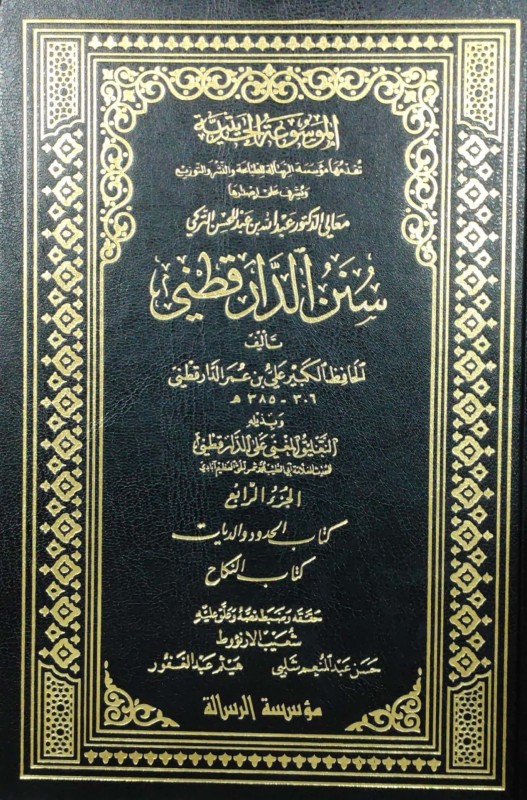 الموسوعة الحديثية
تقدمها مؤسسة الرسالة للطباعة والنشر والتوزيع
ويشرف على إصدارها
معالي الدكتور عبد الله بن عبد المحسن التركي
سنن الدارقطني
تأليف
الحافظ الكبير علي بن عمر الدارقطني
٣٠٦ - ٣٨٥ هـ
وبذيله
التعليق المغني على الدارقطني
للمحدث العلامة أبي الطيب محمد شمس الحق العظيم آبادي
الجزء الرابع
كتاب الحدود والديات
كتاب النكاح
حققه وضبط نصه وعلق عليه
شعيب الارنؤوط
حسن عبد المنعم شلبي هيثم عبد الغفور
مؤسسة الرسالة